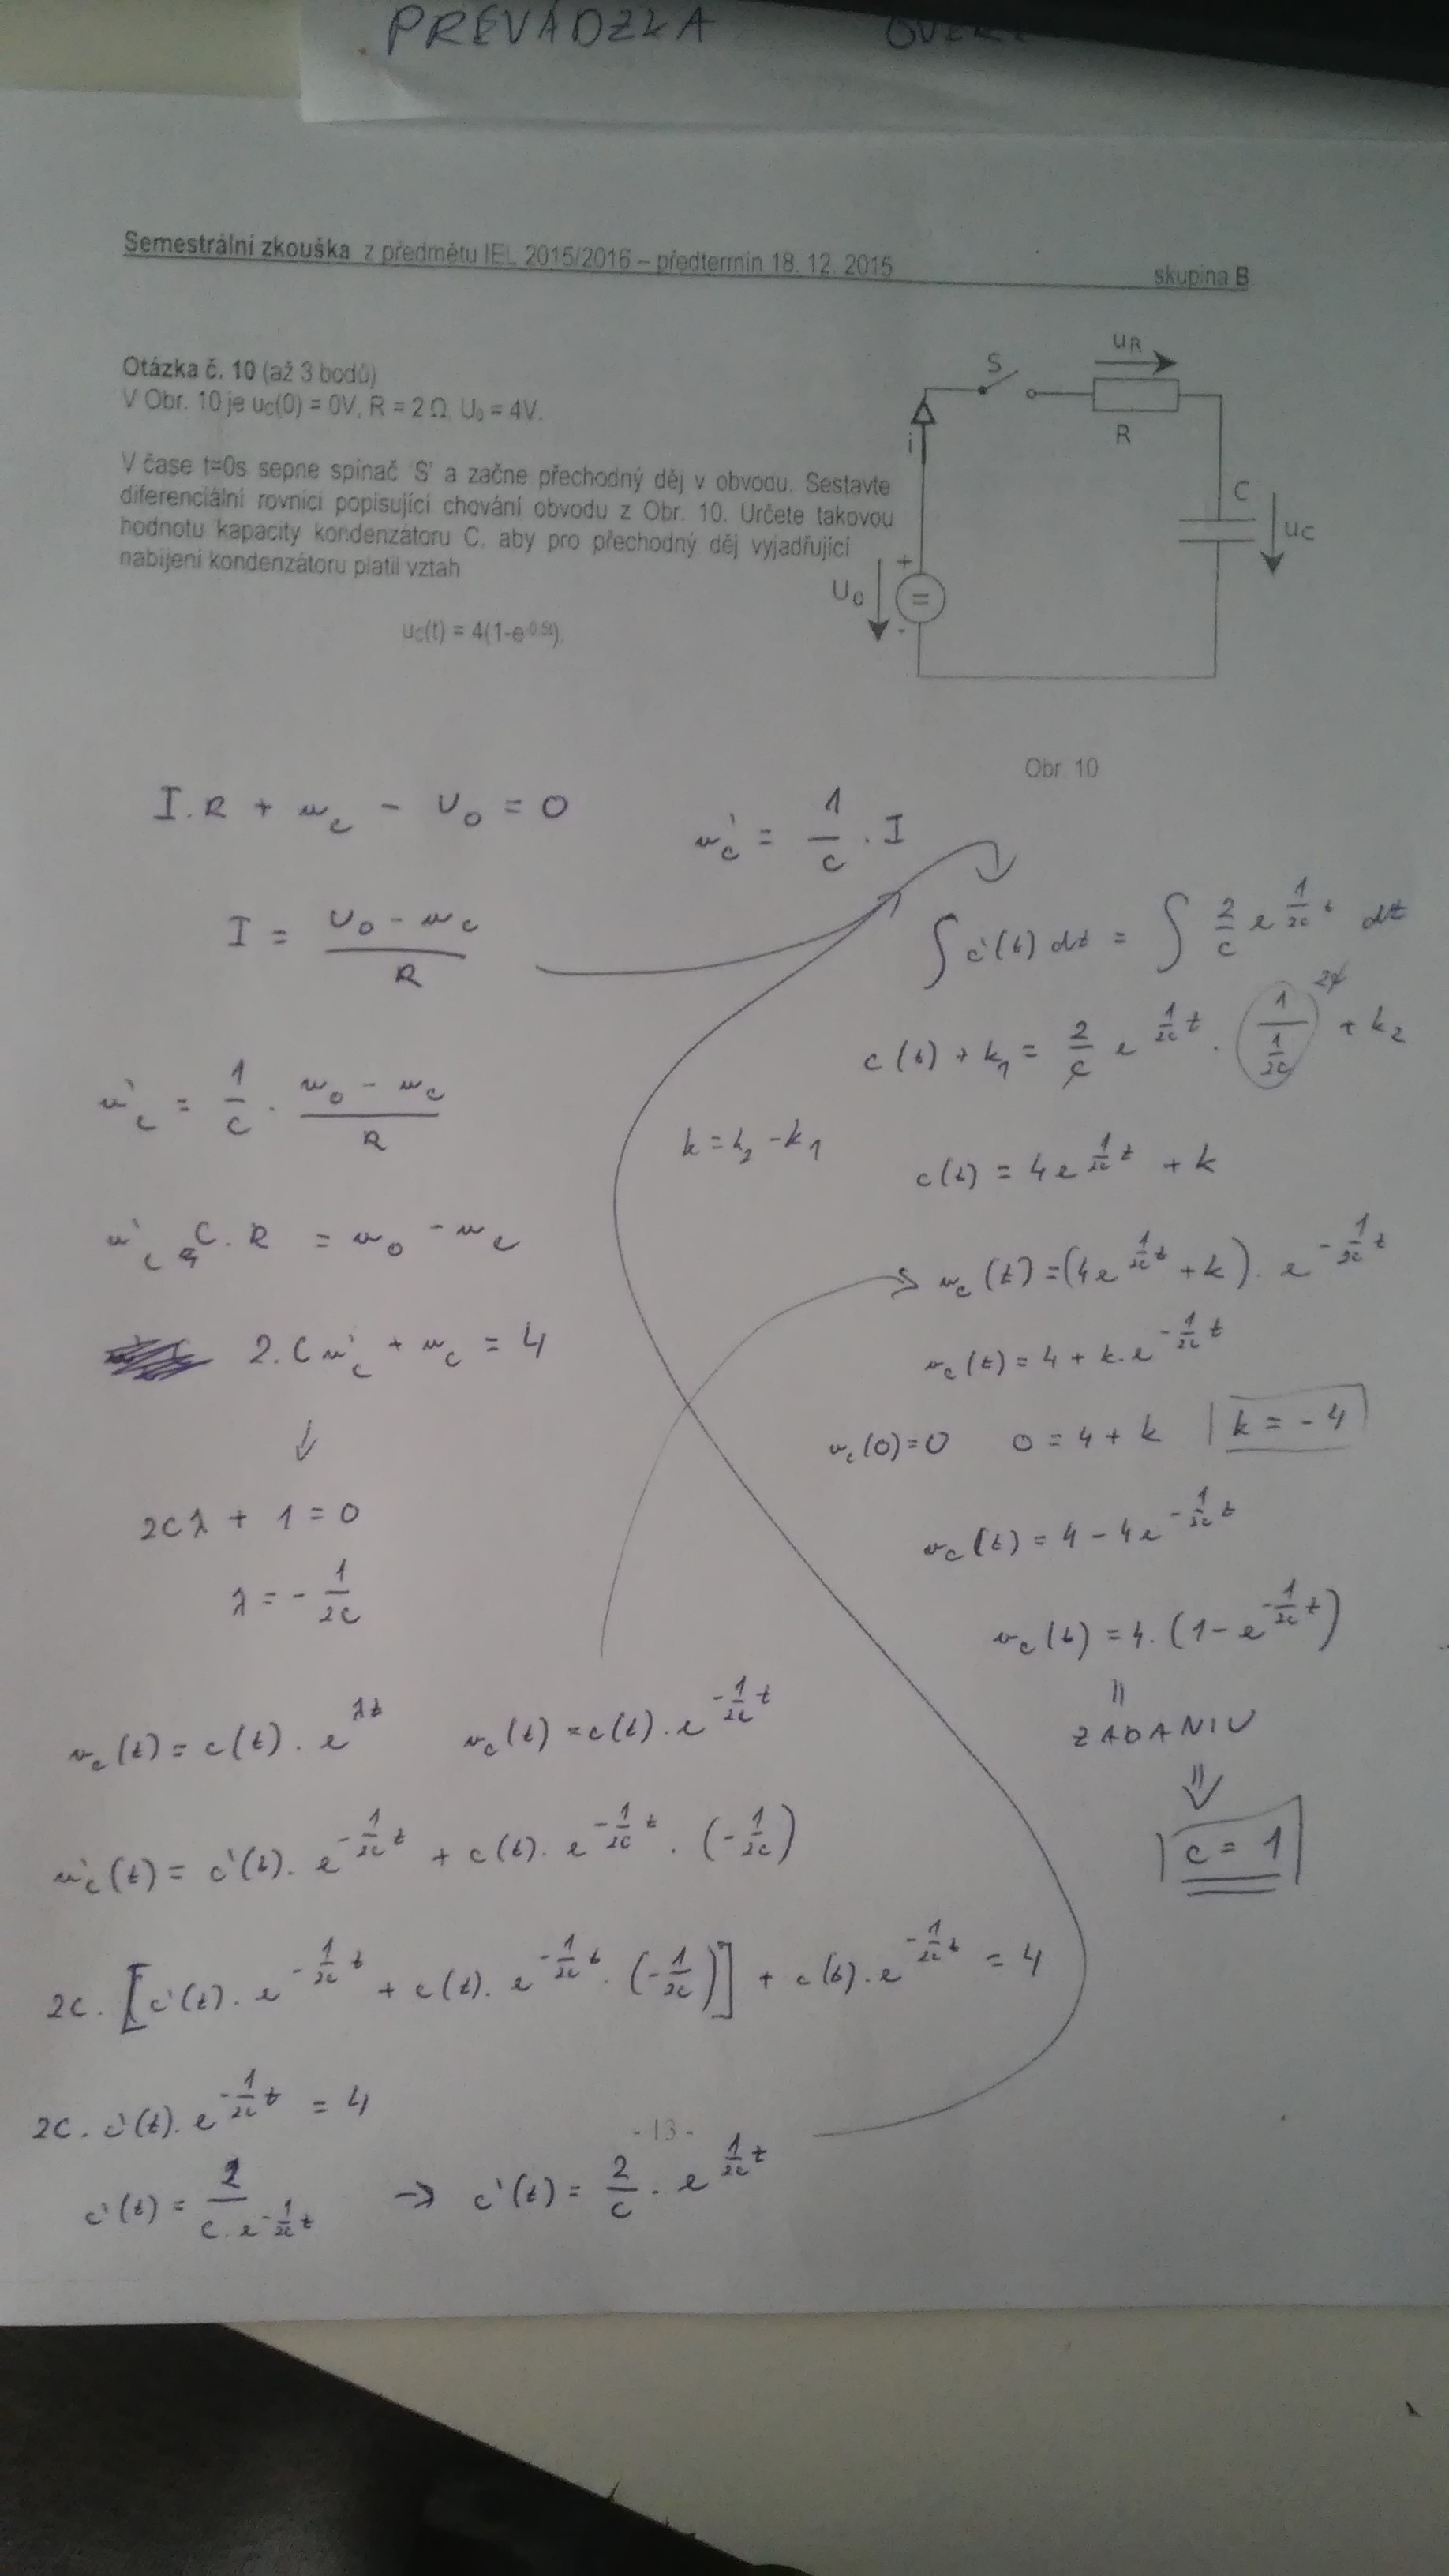 PREVÁDZKA
Semestrální zkouška z předmětu IEL 2015/2016 – předtermín 18. 12. 2015
skupina B
Otázka č. 10 (až 3 bodů)
V Obr. 10 je uC(0) = 0V, R = 2 Ω, U₀ = 4V.
V čase t=0s sepne spínač 'S' a začne přechodný děj v obvodu. Sestavte
diferenciální rovnici popisující chování obvodu z Obr. 10. Určete takovou
hodnotu kapacity kondenzátoru C, aby pro přechodný děj vyjadřující
nabíjení kondenzátoru platil vztah
uC(t) = 4(1-e^-0.5t).
S
uR
R
i
C
uC
U₀
+
=
-
Obr. 10
I.R + u_c - U₀ = 0
I = (U₀ - u_c)/R
u'_c = 1/C . (u₀ - u_c)/R
u'_c C.R = u₀ - u_c
2.C u'_c + u_c = 4
↓
2Cλ + 1 = 0
λ = - 1/2C
u_c(t) = c(t) . e^λt u_c(t) = c(t) . e^(-1/2C t)
u'_c(t) = c'(t) . e^(-1/2C t) + c(t) . e^(-1/2C t) . (-1/2C)
2C . [c'(t) . e^(-1/2C t) + c(t) . e^(-1/2C t) . (-1/2C)] + c(t) . e^(-1/2C t) = 4
2C . c'(t) . e^(-1/2C t) = 4
c'(t) = 2/(C . e^(-1/2C t)) → c'(t) = 2/C . e^(1/2C t)
- 13 -
u'_c = 1/C . I
∫ c'(t) dt = ∫ 2/C e^(1/2C t) dt
c(t) + k₁ = 2/C e^(1/2C t) . 1/(1/2C) + k₂
k = k₂ - k₁
c(t) = 4 e^(1/2C t) + k
u_c(t) = (4e^(1/2C t) + k) . e^(-1/2C t)
u_c(t) = 4 + k . e^(-1/2C t)
u_c(0) = 0 0 = 4 + k k = -4
u_c(t) = 4 - 4e^(-1/2C t)
u_c(t) = 4 . (1 - e^(-1/2C t))
=
ZADANIU
⇓
C = 1